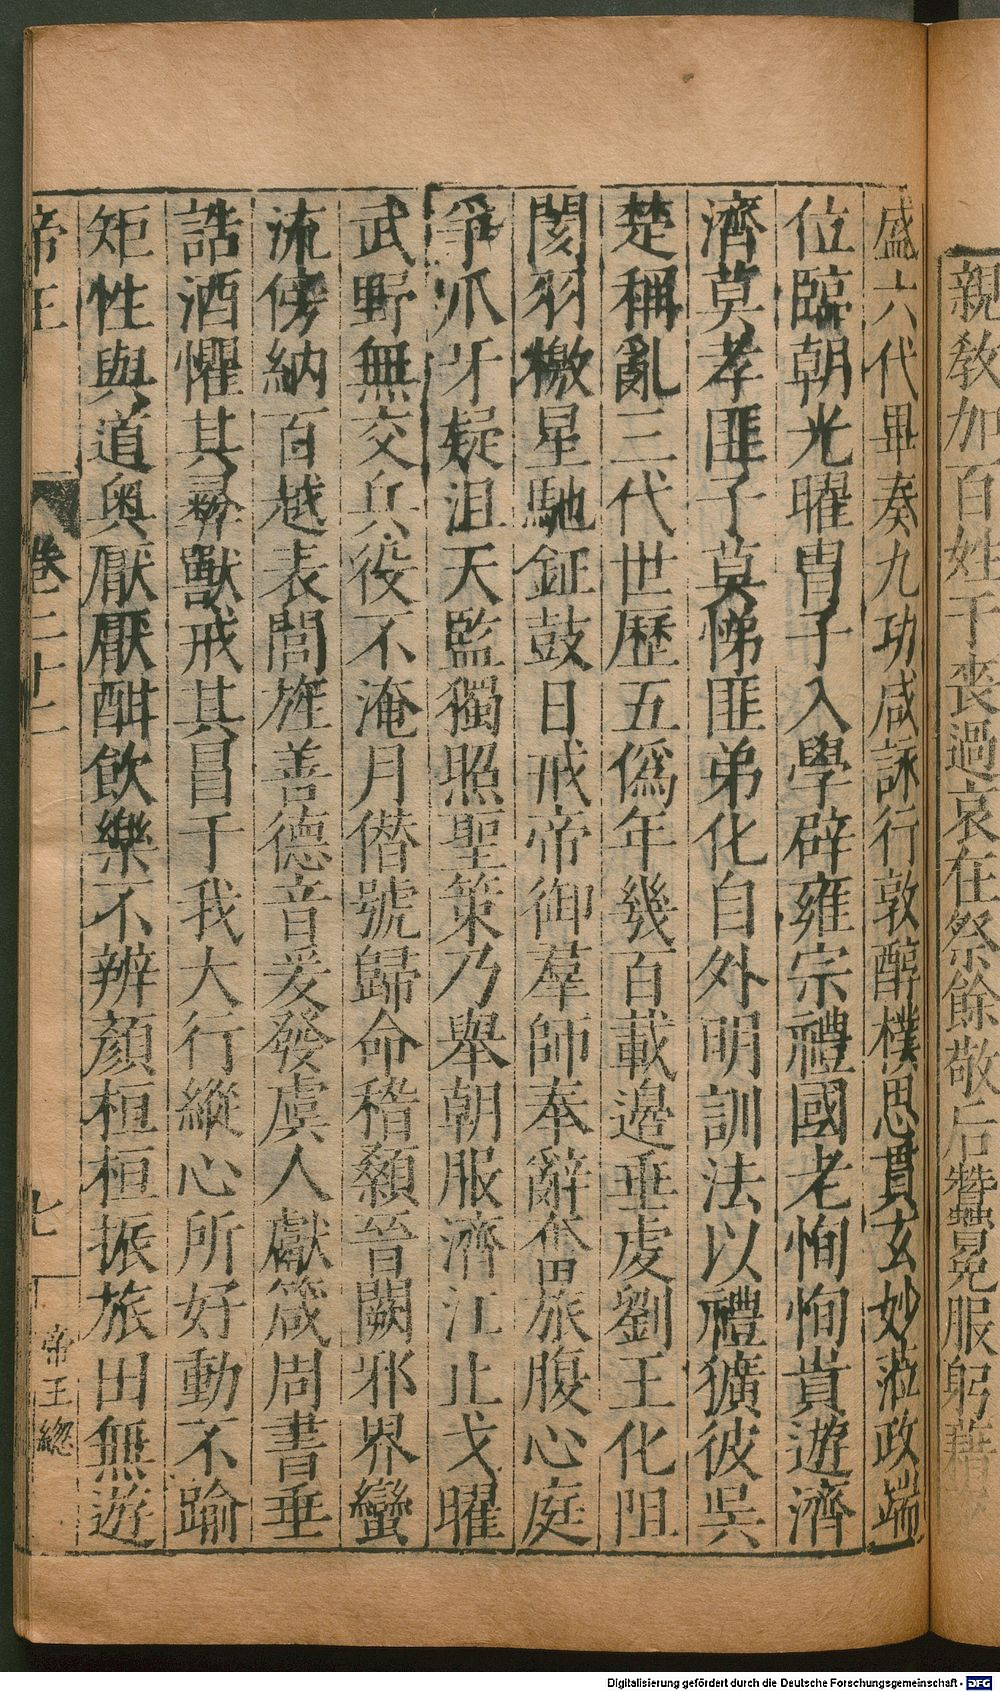 親教加百姓于喪過哀在祭餘敬后蠶冕服躬藉
盛六代畢奏九功咸詠行敦醇樸思貫玄妙蒞政端
位臨朝光曜胄子入學辟雍宗禮國老恂恂貴遊濟
濟莫孝匪子莫悌匪弟化自外明訓法以禮獷彼吳
楚稱亂三代世歷五僞年幾百載邊垂虔劉王化阻
閡羽檄星馳鉦鼓日戒帝御羣師奉辭奮旅腹心庭
爭爪牙疑沮天監獨照聖策乃舉朝服濟江止戈曜
武野無交兵役不淹月僣號歸命稽顙晉闕邪界蠻
流傍納百越表閭旌善德音爰發虞人獻箴周書垂
誥酒懼其彛獸戒其冒于我大行縱心所好動不踰
矩性與道奧厭厭酣飲樂不辨顏桓桓振旅田無遊
帝王 卷二十二 七 帝王總
Digitalisierung gefördert durch die Deutsche Forschungsgemeinschaft - DFG